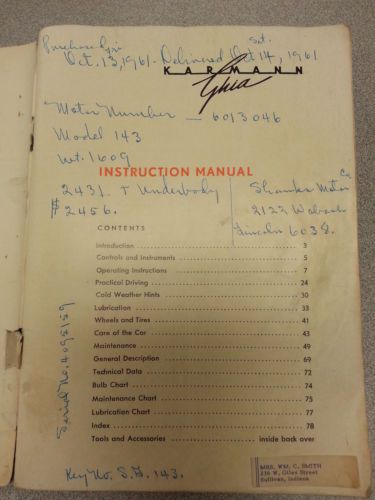 Purchase Fri. Sat.
Oct. 13, 1961 - Delivered Oct 14, 1961
KARMANN
Ghia
Motor Number — 6013046
Model 143
wt. 1609
INSTRUCTION MANUAL
2431. + Underbody
$2456.
Motor Co
2122 Wabash
Lincoln 6038.
CONTENTS
Introduction ........ 3
Controls and Instruments ........ 5
Operating Instructions ........ 7
Practical Driving ........ 24
Cold Weather Hints ........ 30
Lubrication ........ 33
Wheels and Tires ........ 41
Care of the Car ........ 43
Maintenance ........ 49
General Description ........ 69
Technical Data ........ 72
Bulb Chart ........ 74
Maintenance Chart ........ 75
Lubrication Chart ........ 77
Index ........ 78
Tools and Accessories ........ inside back over
Serial No. 4093159
Key No. S.G. 143.
MRS. WM. C. SMITH
236 W. Giles Street
Sullivan, Indiana